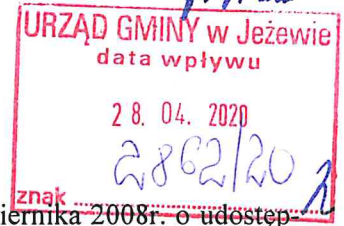 URZĄD GMINY w Jeżewie
data wpływu
28. 04. 2020
2862/20
znak ........................
iernika 2008r. o udostęp-